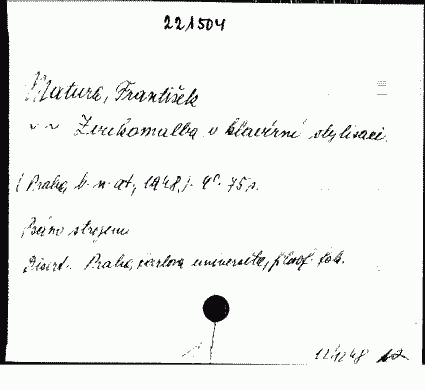 221504
Matura, František
Zvukomalba v klavírní stylisaci.
(Praha, b. n. at, 1948.) 4° 75 s.
Psáno strojem
Disert. Praha, Karlova universita, filosof. fak.
12/1248